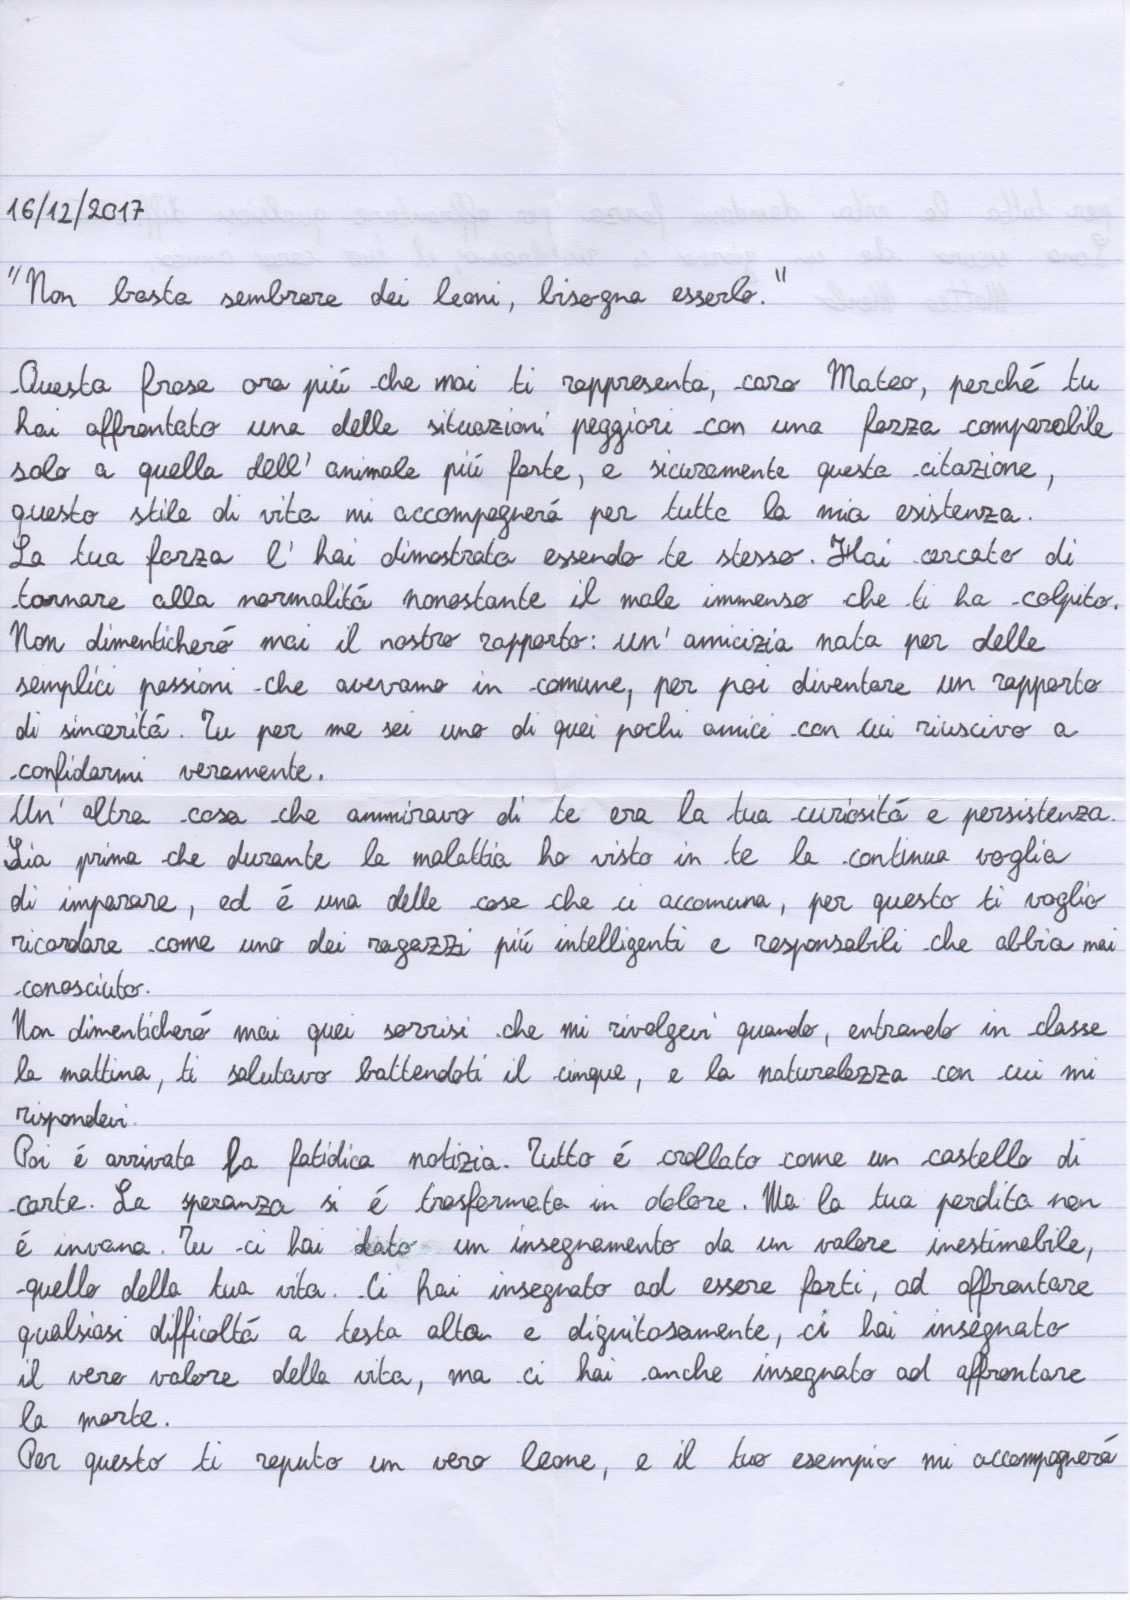 16/12/2017
"Non basta sembrare dei leoni, bisogna esserlo."
Questa frase ora piú che mai ti rappresenta, caro Mateo, perché tu
hai affrontato una delle situazioni peggiori con una forza comparabile
solo a quella dell' animale piú forte, e sicuramente questa citazione,
questo stile di vita mi accompagnerá per tutta la mia esistenza.
La tua forza l' hai dimostrata essendo te stesso. Hai cercato di
tornare alla normalitá nonostante il male immenso che ti ha colpito.
Non dimenticheró mai il nostro rapporto: un' amicizia nata per delle
semplici passioni che avevamo in comune, per poi diventare un rapporto
di sinceritá. Tu per me sei uno di quei pochi amici con cui riuscivo a
confidarmi veramente.
Un' altra cosa che ammiravo di te era la tua curiositá e persistenza.
Sia prima che durante la malattia ho visto in te la continua voglia
di imparare, ed é una delle cose che ci accomuna, per questo ti voglio
ricordare come uno dei ragazzi piú intelligenti e responsabili che abbia mai
conosciuto.
Non dimenticheró mai quei sorrisi che mi rivolgevi quando, entrando in classe
la mattina, ti salutavo battendoti il cinque, e la naturalezza con cui mi
rispondevi.
Poi é arrivata la fatidica notizia. Tutto é crollato come un castello di
carte. La speranza si é trasformata in dolore. Ma la tua perdita non
é invana. Tu ci hai dato un insegnamento da un valore inestimabile,
quello della tua vita. Ci hai insegnato ad essere forti, ad affrontare
qualsiasi difficoltá a testa alta e dignitosamente, ci hai insegnato
il vero valore della vita, ma ci hai anche insegnato ad affrontare
la morte.
Per questo ti reputo un vero leone, e il tuo esempio mi accompagnerá